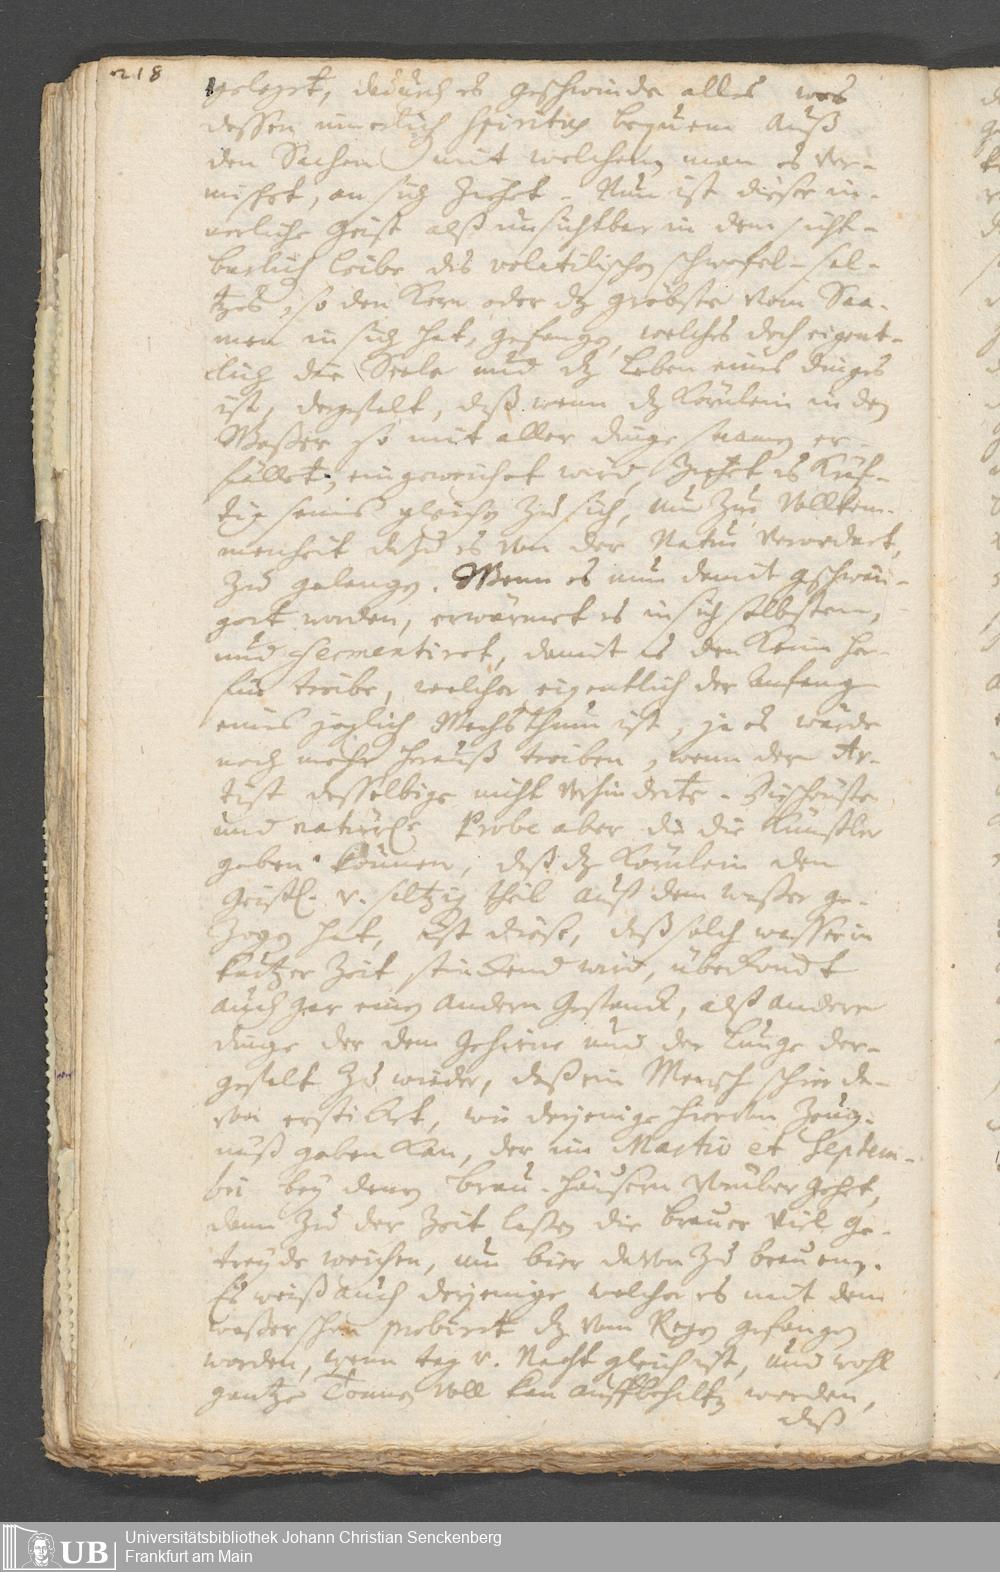 218
geleget, dadurch es geschwinde alles was
dessen innerlich spiritus bequem auß
den Sachen mit welchem man es ver-
mischet, an sich ziehet. Nun ist dieser in-
nerliche Geist alß unsichtbar in dem sicht-
barlich leibe des volatilischen schwefel-sal-
tzes, so den Kern oder dz gröbste vom Saa-
men in sich hat, gefangen, welches doch eigent-
lich die Seele und dz Leben eines dinges
ist, dergestalt, daß wenn dz Körnlein in dem
Wasser so mit aller dinge saamen er-
füllet, eingeweichet wird, ziehet es kräf-
tig seines gleichen zu sich, um zur Vollkom-
menheit dazu es von der Natur verordnet,
zu gelangen. Wenn es nun damit geschwän-
gert worden, erwärmet es in sich selbsten,
und fermentiret, damit es den Keim her-
für treibe, welcher eigentlich der Anfang
eines jeglich Wachsthum ist, ja es würde
noch mehr herauß treiben, wenn der Ar-
tist desselbige nicht verhinderte.
und Probe aber die die Künstler
geben können, daß dz Körnlein den
Geistl. v. saltzig theil auß dem wasser ge-
zogen hat, ist diese, daß solch wasser in
kurtzer Zeit stinckend wird, überkomt
auch gar einen andern Gestanck, alß andere
dinge der dem Gehirne und der Lunge der-
gestalt zu wieder, daß ein Mensch schier da-
von ersticket, wie derjenige hiervon zeug-
nuß geben kan, der im Martio et Septem-
bri bey denen Brau-häusern vorüber gehet,
dann zu der Zeit lassen die Brauer viel ge-
treyde weichen, um bier davon zu brauen.
Es weiß auch derjenige welcher es mit dem
wasser schon probiret dz vom Regen gefangen
worden, wenn tag v. Nacht gleich ist, und wohl
gantze Tonnen voll kan auffbehalten werden,
daß
UB
Universitätsbibliothek Johann Christian Senckenberg
Frankfurt am Main